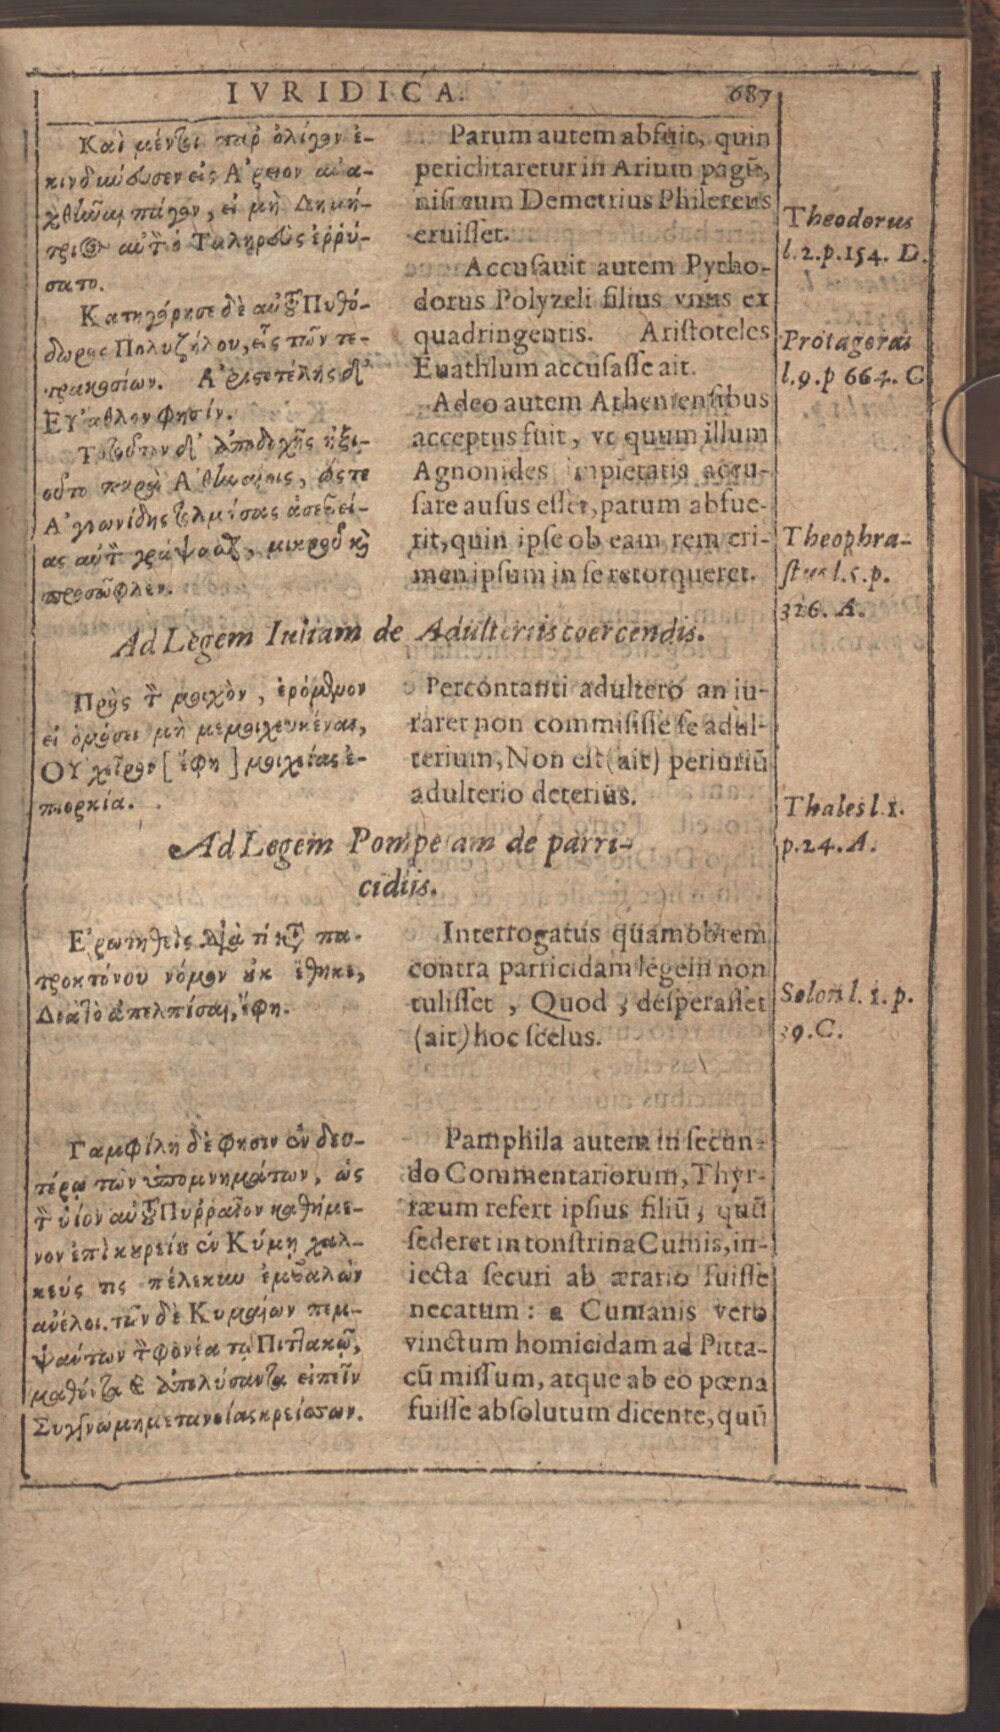 IVRIDICA. 687
Καὶ μέντοι παρ' ὀλίγον ἐ-
κινδύνευσεν εἰς Ἄρειον ἀνα-
χθῆναι πάγον, εἰ μὴ Δημή-
τριος αὐτὸν ὁ Φαληρεὺς ἐρρύ-
σατο.
Κατηγόρησε δὲ αὐτοῦ Πυθό-
δωρος Πολυζήλου, εἷς τῶν τε-
τρακοσίων. Ἀριστοτέλης δ'
Εὔαθλον φησίν.
Τοσοῦτον δ' ἀποδοχῆς ἠξι-
οῦτο παρὰ Ἀθηναίοις, ὥστε
Ἀγνωνίδης τολμήσας ἀσεβεί-
ας αὐτὸν γράψασθαι, μικροῦ καὶ
προσῶφλεν.
Parum autem abfuit, quin
periclitaretur in Arium pagū,
nisi eum Demetrius Philereus
eruisset.
Accusauit autem Pytho-
dorus Polyzeli filius vnus ex
quadringentis. Aristoteles
Euathlum accusasse ait.
Adeo autem Atheniensibus
acceptus fuit, vt quum illum
Agnonides impietatis accu-
sare ausus esset, parum abfue-
rit, quin ipse ob eam rem cri-
men ipsum in se retorqueret.
Theodorus
l.2.p.154. D.
Protagoras
l.9.p 664. C
Theophra-
stus l.5.p.
326. A.
Ad Legem Iuliam de Adulteriis coercendis.
Πρὸς τὸν μοιχὸν, ἐρόμενον
εἰ ὀμόσει μὴ μεμοιχευκέναι,
ΟΥ χεῖρον [ἔφη] μοιχείας ἐ-
πιορκία.
Percontanti adultero an iu-
raret non commisisse se adul-
terium, Non est (ait) periuriū
adulterio deterius.
Thales l.1.
p.24.A.
Ad Legem Pompeiam de parri-
cidiis.
Ἐρωτηθεὶς διὰ τί κατὰ πα-
τροκτόνου νόμον οὐκ ἔθηκε,
Διὰ τὸ ἀπελπίσαι, ἔφη.
Interrogatus quamobrem
contra parricidam legem non
tulisset, Quod, desperasset
(ait) hoc scelus.
Solon l. 1. p.
39.C.
Παμφίλη δὲ φησιν ἐν δευ-
τέρῳ τῶν ὑπομνημάτων, ὡς
τὸν υἱὸν αὐτοῦ Πυρραῖον καθήμε-
νον ἐπὶ κουρείου ἐν Κύμῃ χαλ-
κεύς τις πέλεκυν ἐμβαλὼν
ἀνέλοι. τῶν δὲ Κυμαίων πεμ-
ψάντων τὸν φονέα τῷ Πιττακῷ,
μαθόντα καὶ ἀπολύσαντα εἰπεῖν
Συγγνώμη μετανοίας κρείσσων.
Pamphila autem in secun-
do Commentariorum, Thyr-
ræum refert ipsius filiū, quū
sederet in tonstrina Cumis, in-
iecta securi ab ærario fuisse
necatum: a Cumanis vero
vinctum homicidam ad Pitta-
cū missum, atque ab eo pœna
fuisse absolutum dicente, quū